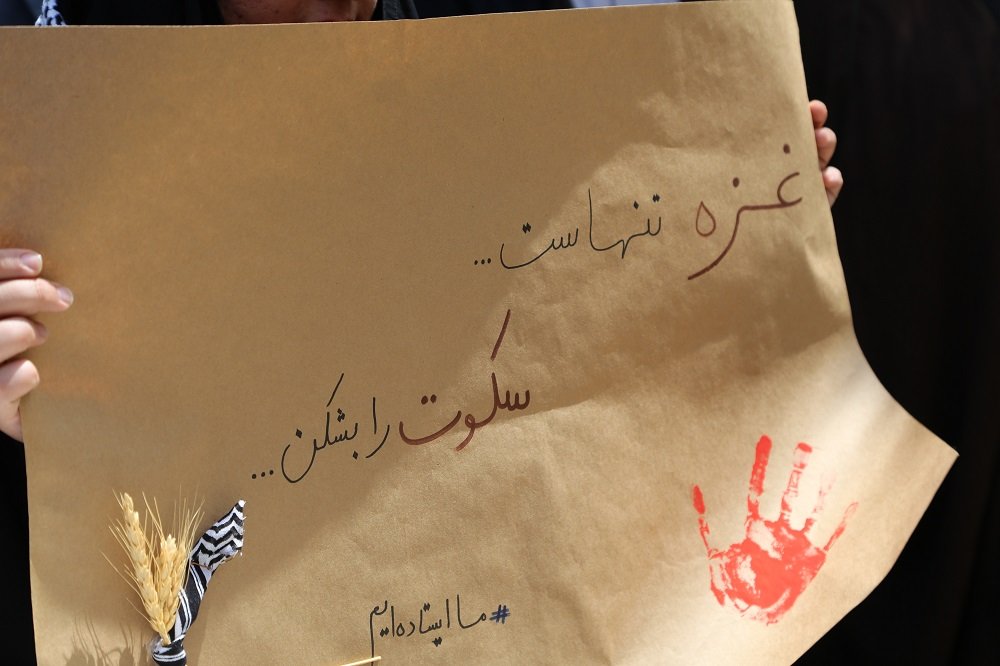 غزه تنهاست...
سکوت را بشکن...
#ما ایستاده ایم